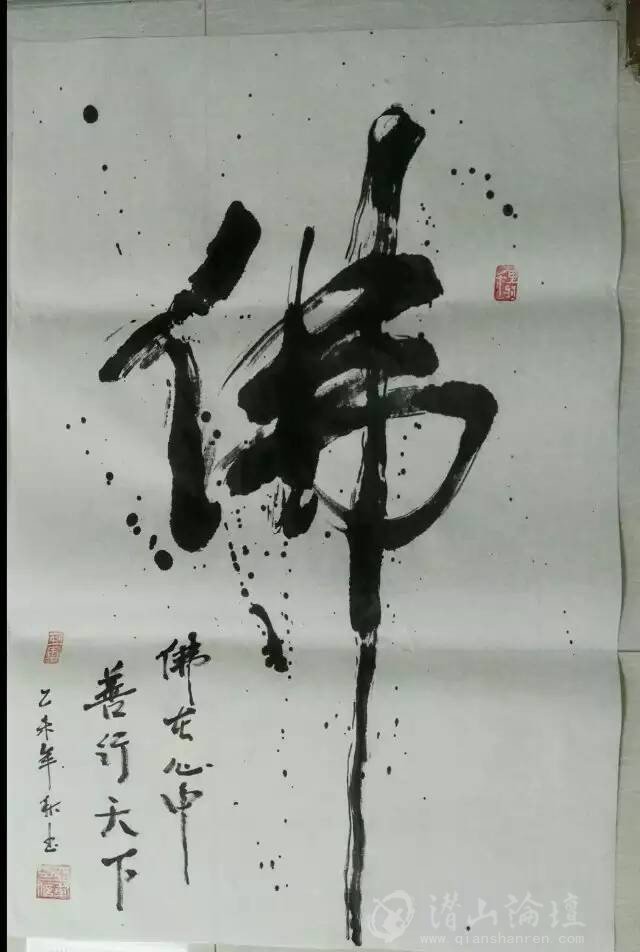 佛
佛在心中
善行天下
乙未年
潜山論壇
www.qianshanren.com